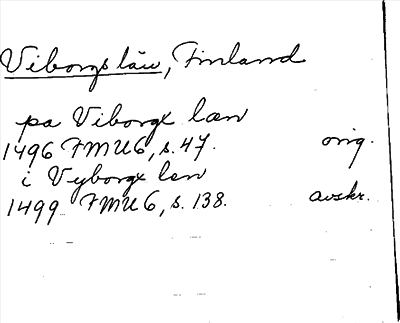 Viborgs län, Finland
pa Viborgx læn
1496 FMU6, s. 47. orig.
i Vyborgx len
1499 FMU 6, s. 138. avskr.